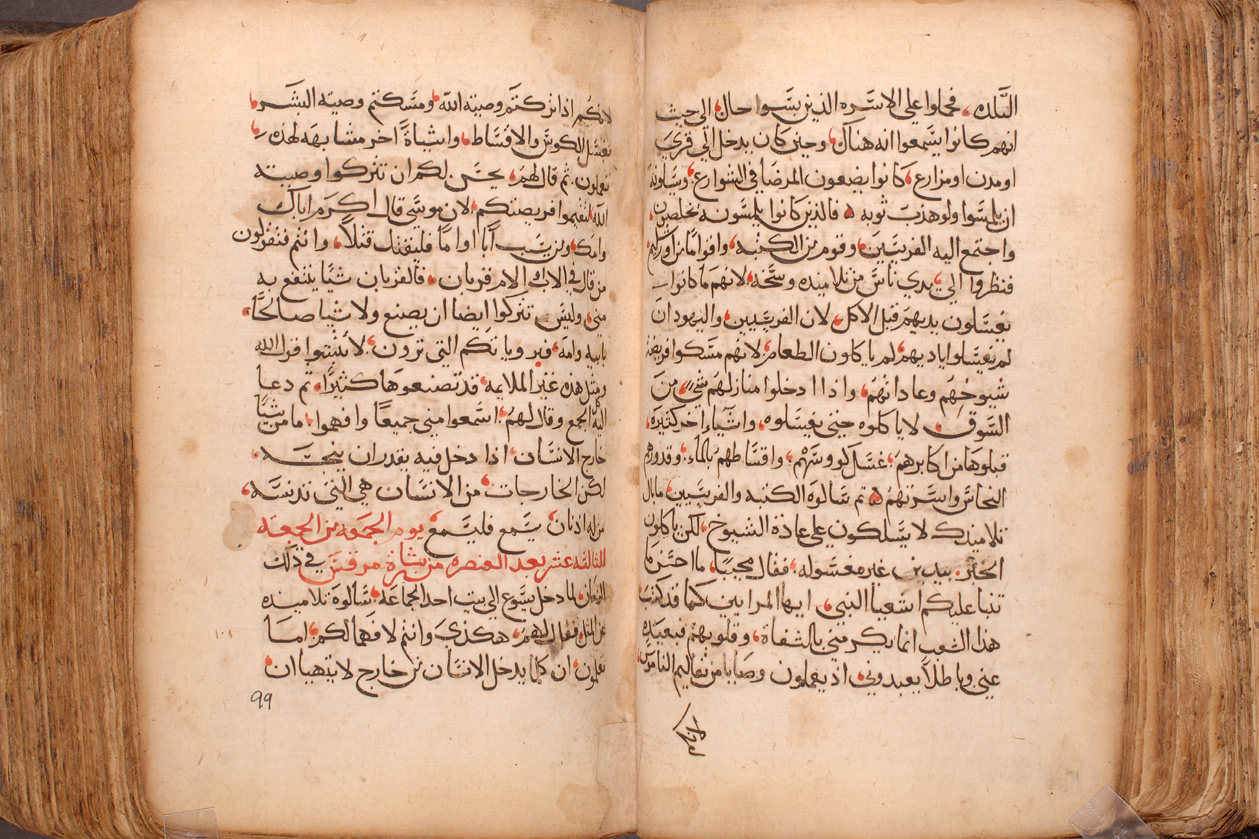 البلده، فحملوا على الاسره الذين بسوا حال، الى حيث
انهم كانوا يسمعوا انه هناك، وحين كان يدخل الى قرى
او مدن او مزارع، كانوا يضعون المرضا في الشوارع، ويسالونه
ان يلمسوا ولو هدب ثوبه، فالذين كانوا يلمسونه تخلصون،
واجتمع اليه الفريسين، وقوم من الكتبه، وافوا من اورشليم
فنظروا الى يدي ناس من تلاميذه وسخه، لانهم ما كانوا
يغسلون يديهم قبل الاكل، لان الفريسيين، واليهود ان
لم يغسلوا اياديهم لم ياكلون الطعام، لانهم مسكوا فريضة
شيوخهم وعاداتهم، واذا ادخلوا منازلهم شي من
السوق، لا ياكلوه حتى يغسلوه، واشياء اخر كثيره،
قبلوها من اكابرهم، غسل كووسهم، واقساطهم بالماء، وقدورهم
النحاس واسرتهم، ثم سالوه الكتبه والفريسين، ما بال
تلاميذك لا يسلكون على عادة الشيوخ، لكن ياكلون
الخبز بيدين غير مغسوله، فقال مجيبا، ما احسن ما
تنبا عليكم اشعيا النبي، ايها المرايين كما قد كتب
هذا الشعب انما يكرمني بالشفاة، وقلوبهم فبعيده
عني وباطلاً يعبدوني، اذ يعلمون وصايا من تعاليم الناموس،
لانكم اذا تركتم وصية الله، ومسكتم وصية البشر،
بغسل الكوس والاقساط، واشياءً اخر مشابهه لهذه،
تعملون، ثم قال لهم، يحسن لكم ان تتركوا وصية
الله لتقيموا فريضتكم، لان موسى قال اكرم اباك
وامك، ومن سب ابًا او امًا فليقتل قتلاً، وانتم فتقولون
من قال في الاب او الام قربان، فالقربان شيًا ينتفع به
مني، وليس تتركوا ايضا ان يصنع ولا شيا صالحًا،
بابيه وامه، فبروياتكم التي ترون، لا تثبتوا قول الله
ومثل هذه غير الملايمه، قد تصنعوها كثيرًا، ثم دعا
اليه الجمع وقال لهم، اسمعوا مني جميعًا وافهموا، ما من شيًا
خارج الانسان، اذا دخل فيه يقدر ان ينجسه،
لكن الخارجات، من الانسان هي التي تدنسه،
من له اذنان يسمع فليسمع، يوم الجمعه من الجمعه
الثالثه عشر بعد العنصره من بشارة مرقس في ذلك
الزمان لما دخل يسوع الى بيت احد الجماعه، سالوه تلاميذه
عن المثل، فقال لهم، هكذى وانتم لا فهم لكم، اما
تعلمون، ان كلما يدخل الانسان من خارج لا يتهيا ان
99